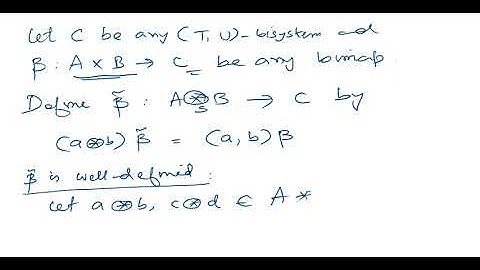 Let C be any (T, U)-bisystem and
β : A × B → C be any bimap.
Define β̃ : A ⊛_S B → C by
(a ⊛ b) β̃ = (a, b) β
β̃ is well-defined :
Let a ⊛ b, c ⊛ d ∈ A *